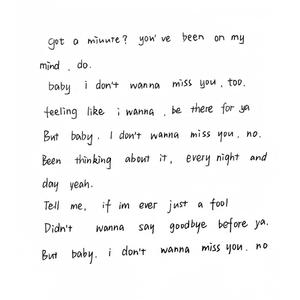 got a minute? you've been on my
mind. do.
baby i don't wanna miss you. too.
feeling like i wanna. be there for ya
But baby. I don't wanna miss you. no.
Been thinking about it, every night and
day yeah.
Tell me, if im ever just a fool
Didn't wanna say goodbye before ya.
But baby. i don't wanna miss you. no